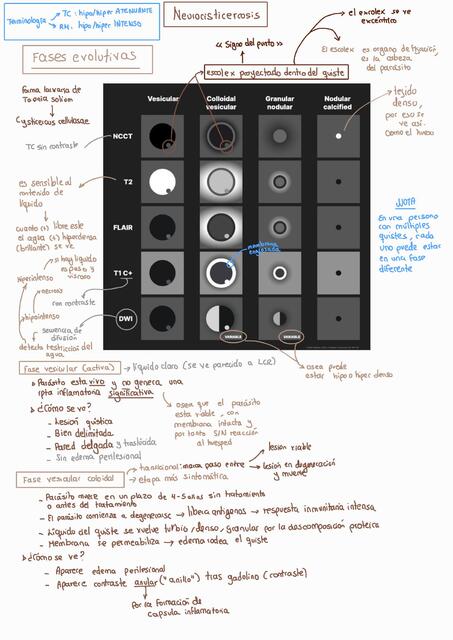 Neurocisticerosis
Terminología → TC: hipo/hiper ATENUANTE
→ RM: hipo/hiper INTENSO
el escolex se ve
excéntrico
<< Signo del punto >>
Fases evolutivas
escolex proyectado dentro del quiste
El escolex es organo de fijación,
es la cabeza
del parásito
Forma larvaria de
Taenia solium
Cysticercus cellulosae
TC sin contraste
Vesicular
Colloidal
vesicular
Granular
nodular
Nodular
calcified
NCCT
T2
FLAIR
T1 C+
DWI
VARIABLE
VARIABLE
membrana
engrosada
tejido
denso,
por eso se
ve así.
Como el hueso
es sensible al
contenido de
líquido
cuanto (+) libre este
el agua (+) hiperdensa
(brillante) se ve
si hay líquido
espeso y
viscoso
hiperintenso
necrosis
rm contraste
hipointenso
secuencia de
difusión
detecta restricción del
agua
NOTA
En una persona
con múltiples
quistes, cada
uno puede estar
en una fase
diferente
osea puede
estar hipo o hiper denso
Fase vesicular (activa) → líquido claro (se ve parecido a LCR)
Parásito esta vivo y no genera una
rpta inflamatoria significativa
osea que el parásito
esta viable, con
membrana intacta y
por tanto SIN reacción
al huesped
¿Cómo se ve?
- Lesion quística
- Bien delimitada
- Pared delgada y traslúcida
- Sin edema perilesional
Fase vesicular coloidal
transicional: marca paso entre → lesion viable
→ lesion en degeneración
y muerte
etapa más sintomática
- Parásito muere en un plazo de 4-5 años sin tratamiento
o antes del tratamiento
- El parásito comienza a degenerarse → libera antígenos → respuesta inmunitaria intensa
- Líquido del quiste se vuelve turbio, denso, granular por la descomposición proteica
- Membrana se permeabiliza → edema rodea el quiste
¿Cómo se ve?
- Aparece edema perilesional
- Aparece contraste anular ("anillo") tras gadolino (contraste)
Por la formación de
capsula inflamatoria